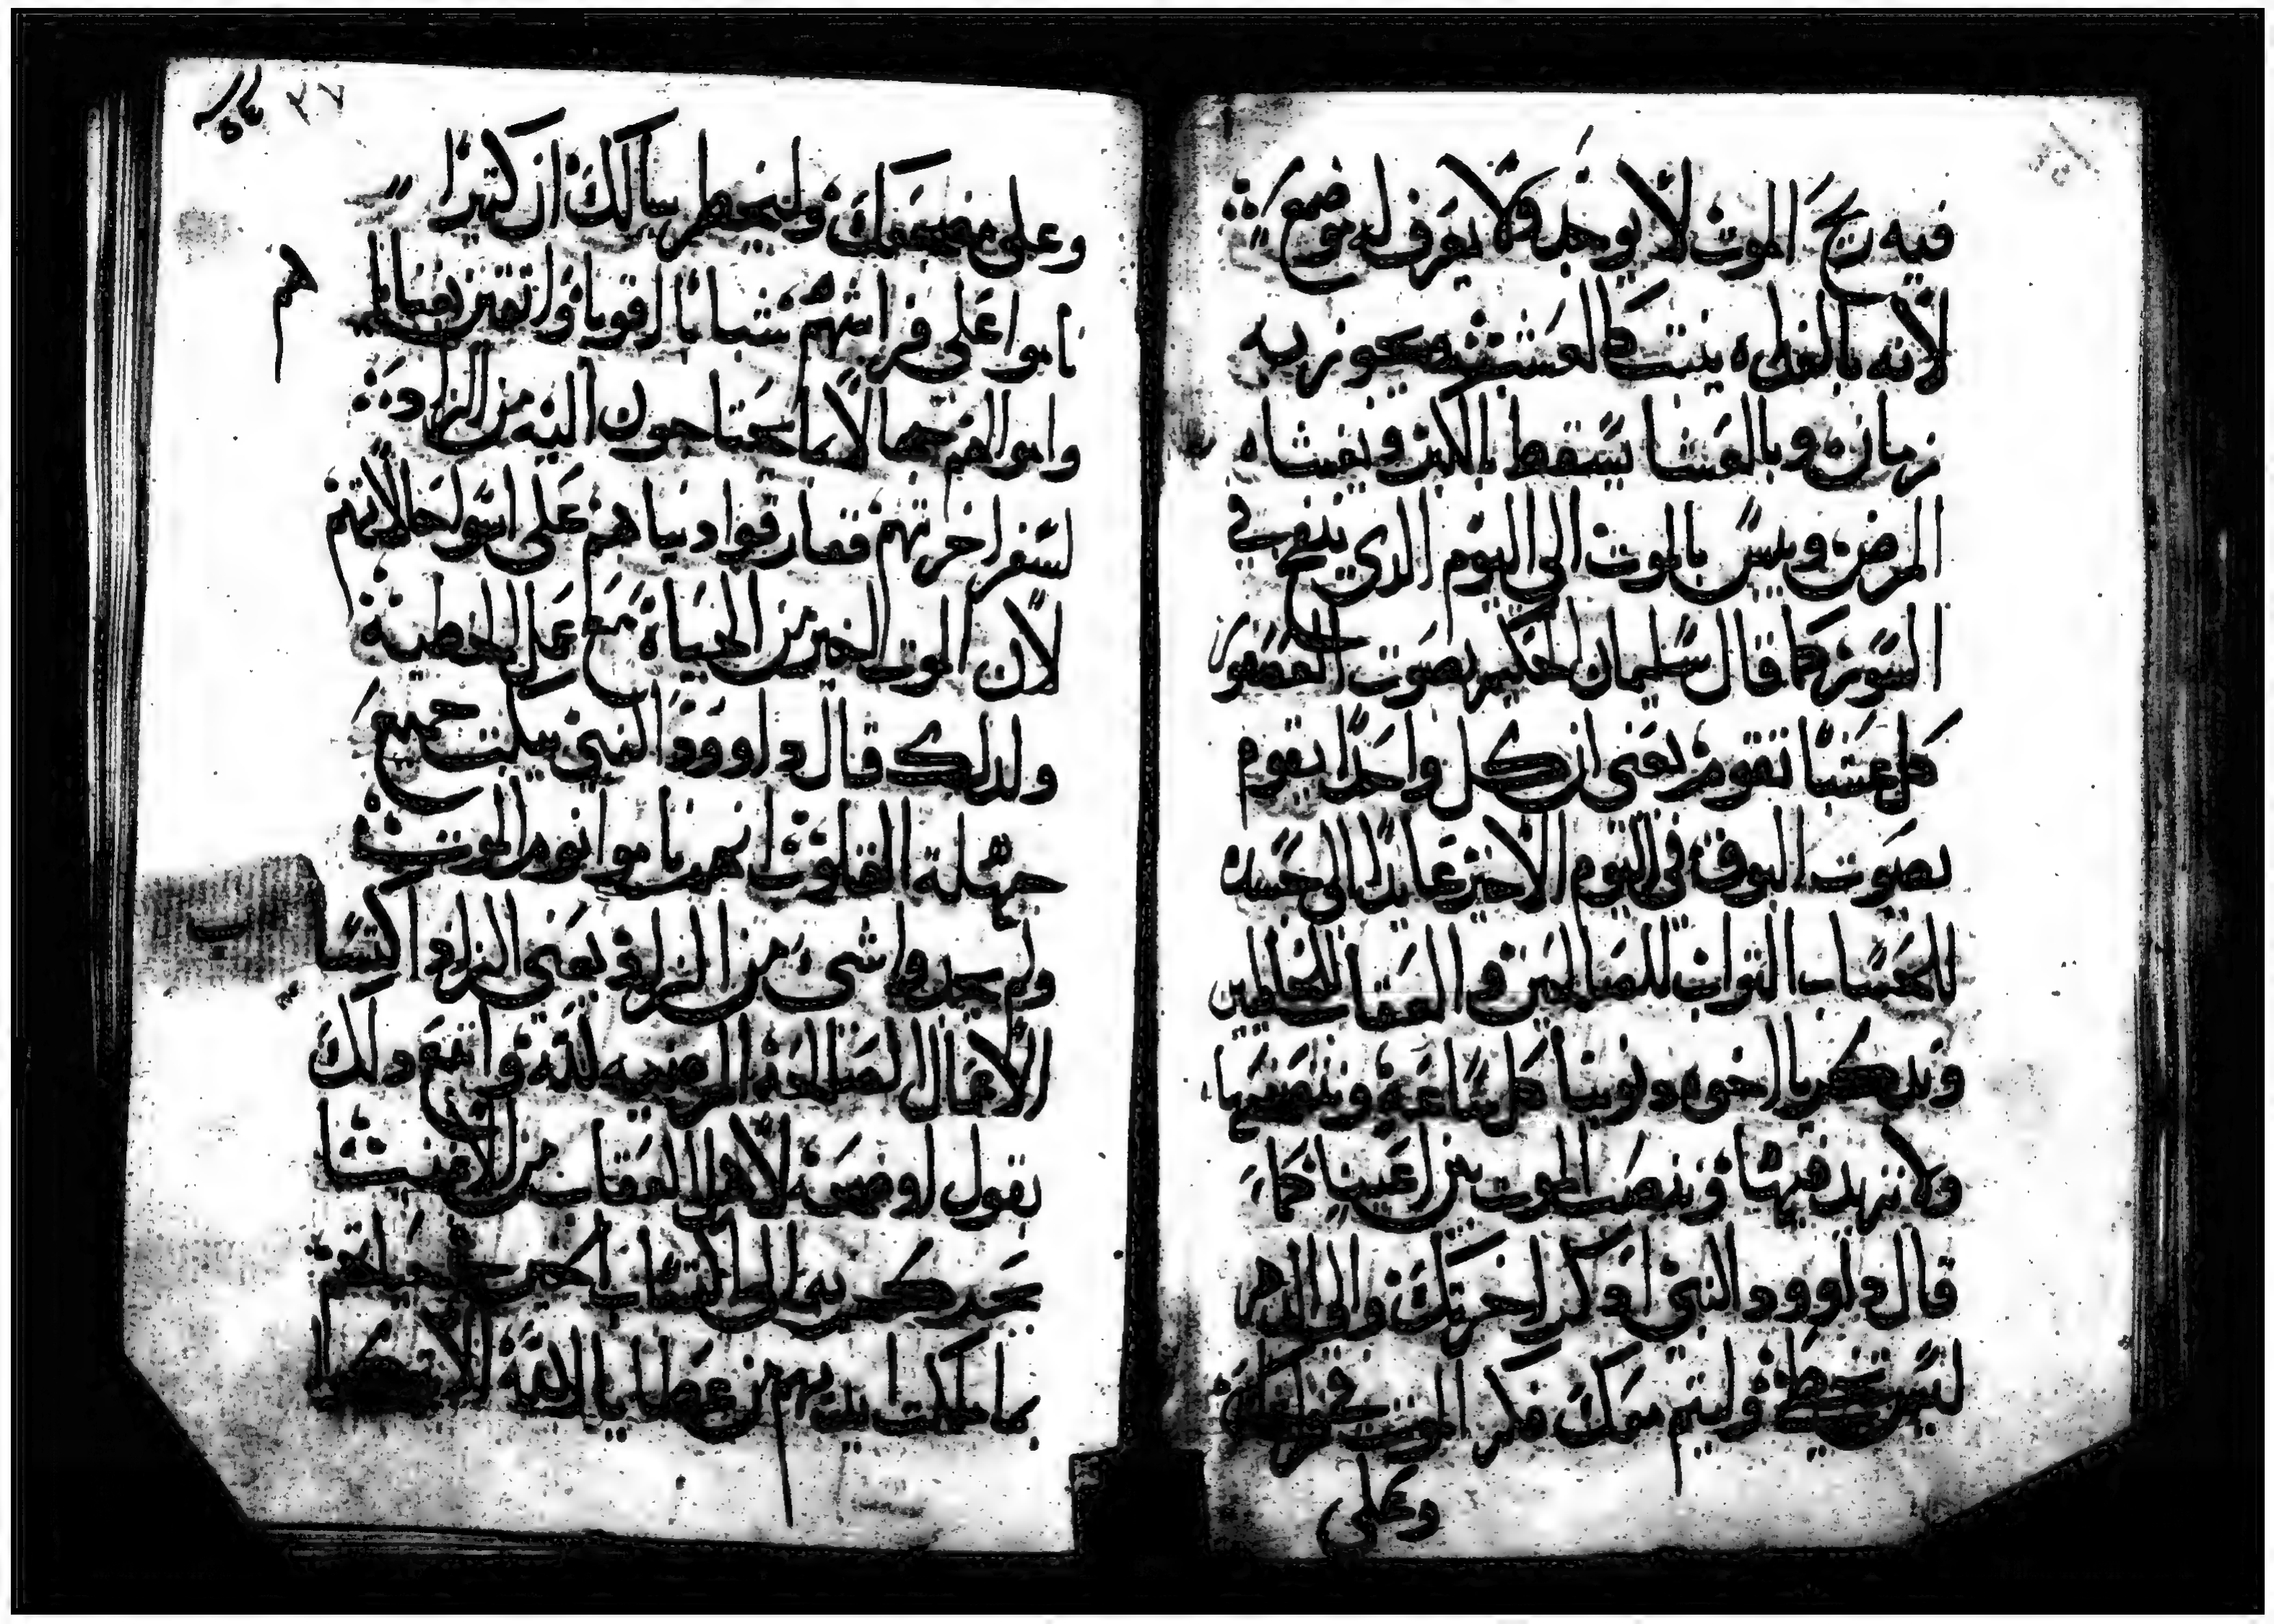 فيه ريح الموت لا يوجد ولا يعرف له موضع
لانه بالغداه ينبت كالعشب ويجوز به
زمانه وبالعشا يسقط بالكبر ويغشاه
المرض ويبس بالموت الى اليوم الدي ينفخ في
السور كما قال سليمان الحكيم بصوت العصفور
كل عشيا تقوم يعني ان كل واحدا يقوم
بصوت البوق في اليوم الاخير عايدا الى جسده
للحساب التواب للصالحين والعقاب للخاطيين
وندكر يا اخوه دنوبنا كل ساعه ونبغضها
ولا نزهد فيها وننصب الموت بين اعيينا كما
قال داوود النبي ادكر اخرتك والى الدهر
ليس تخطي وليتم معك فكر الموت في
وعلى
٣٧
وعلى مضجعك وليخطر ببالك ان كتيرا
ناموا على فراشهم شبابا اقويا واتقين بغناهم
واموالهم جمالا ما يحتاجون اليه من الزاد
لسفر اخرتهم ففارقوا دنياهم على اسوا حالاتهم
لان الموت الخير من الحياه مع عمل الخطيه
ولدلك قال داوود النبي سكت جميع
جهلة القلوب انهم ناموا نوم الموت
ولم يجدوا شى من الزاد يعني الزاد اكتساب
الاعمال الصالحة المرضيه لله واتبع دلك
بقول اوضحه لاهل العقاب من الاغنيا
يحدكم به الى اكتساب حياتهم
ما ملكت ايديهم من عطايا الله